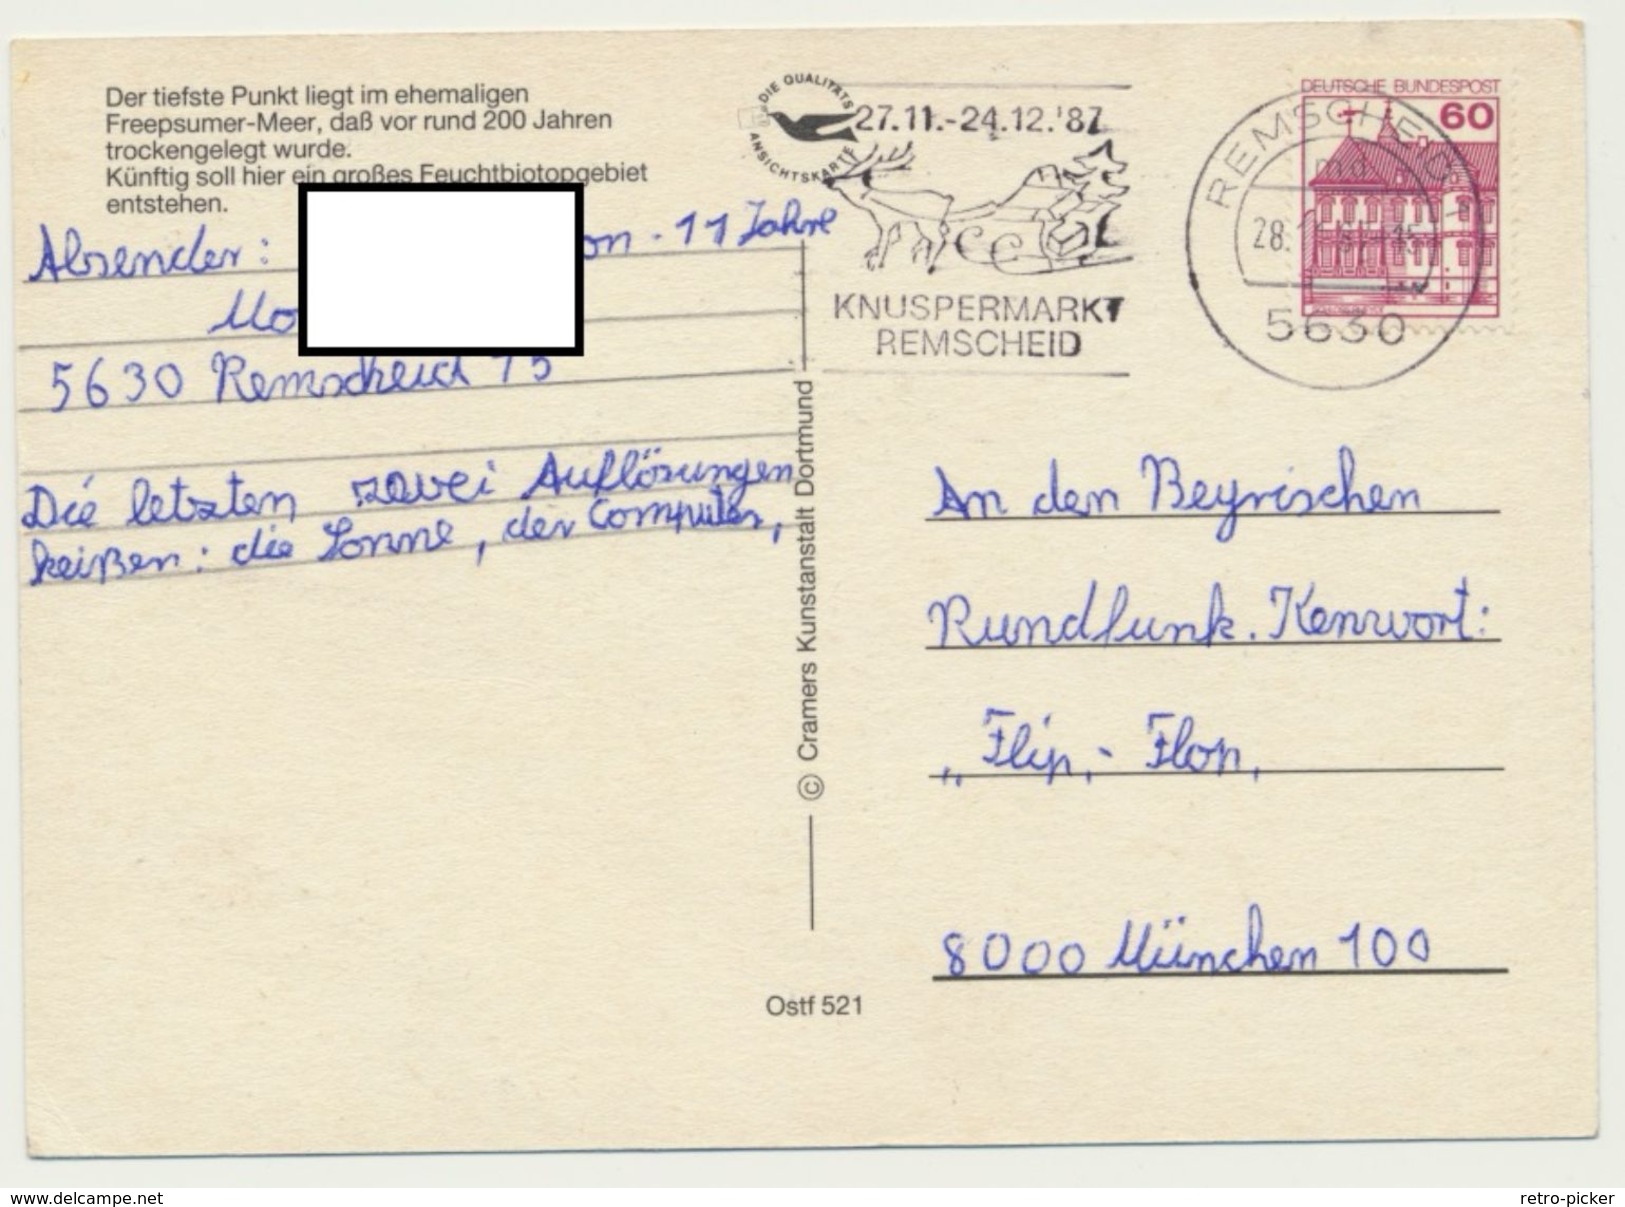 Der tiefste Punkt liegt im ehemaligen
Freepsumer-Meer, daß vor rund 200 Jahren
trockengelegt wurde.
Künftig soll hier ein großes Feuchtbiotopgebiet
entstehen.
Absender: on - 11 Jahre
Mo
5630 Remscheid 15
Die letzten zwei Auflösungen
heißen: die Sonne, der Computer,
DIE QUALITÄTS
ANSICHTSKARTE
27.11.-24.12.'87
KNUSPERMARKT
REMSCHEID
DEUTSCHE BUNDESPOST
60
REMSCHEID 1
md
28.
5630
© Cramers Kunstanstalt Dortmund
Ostf 521
An den Beyrischen
Rundfunk. Kenwort:
„Flip,- Flop,
8000 München 100
www.delcampe.net
retro-picker